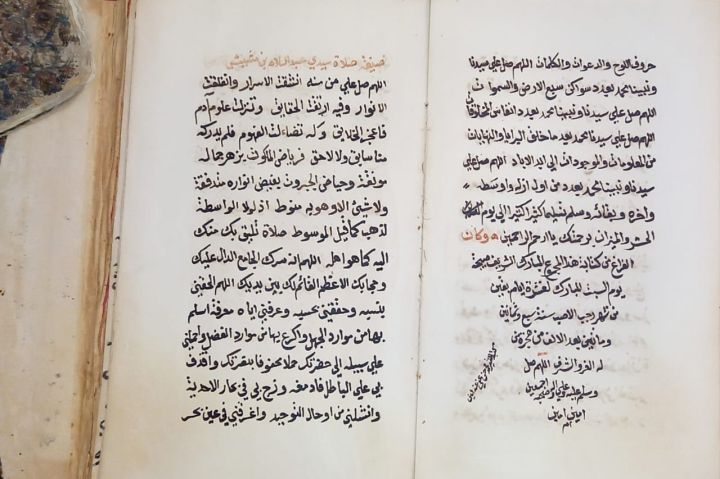 حروف اللوح والدعوات والكلمات اللهم صل علي سيدنا
ونبينا محمد بعدد سواكن سبع الارض والسموات
اللهم صل علي سيدنا ونبينا محمد بعدد انفاس المخلوقات
اللهم صل علي سيدنا محمد بعدد ما خلق
من المعلومات والموجودات الي ابد الاباد اللهم صل علي
سيدنا ونبينا محمد بعدد من اول ازله واوسطه
واخره وبقائه وسلم تسليما كثيرا كثيرا الي يوم
الحشر والميزان برحمتك يا ارحم الراحمين وكان
الفراغ من كتابة هذا المجموع المبارك الشريف صبيحة
يوم السبت المبارك لعشرة ايام بقين
من شهر رجب الاصب سنة سبع وثمانين
ومائتين بعد الالف من هجرة من
له العز والشرف اللهم صل
وسلم عليه وعلي اله وصحبه اجمعين
امين امين
صيغة صلاة سيدي عبد السلام بن مشيش
اللهم صل علي من منه انشقت الاسرار وانفلقت
الانوار وفيه ارتقت الحقايق وتنزلت علوم ادم
فاعجز الخلايق وله تضاءلت الفهوم فلم يدركه
منا سابق ولا لاحق فرياض الملكوت بزهر جماله
مونقة وحياض الجبروت بفيض انواره متدفقة
ولا شئ الا وهو به منوط اذ لولا الواسطة
لذهب كما قيل الموسوط صلاة تليق بك منك
اليه كما هو اهله اللهم انه سرك الجامع الدال عليك
وحجابك الاعظم القائم لك بين يديك اللهم الحقني
بنسبه وحققني بحسبه وعرفني اياه معرفة اسلم
بها من موارد الجهل واكرع بها من موارد الفضل واحملني
علي سبيله الي حضرتك حملا محفوفا بنصرتك واقذف
بي علي الباطل فادمغه وزج بي في بحار الاحدية
وانشلني من اوحال التوحيد واغرقني في عين بحر